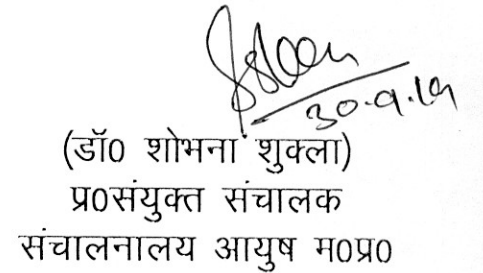 30.9.19
(डॉ0 शोभना शुक्ला)
प्र0संयुक्त संचालक
संचालनालय आयुष म0प्र0